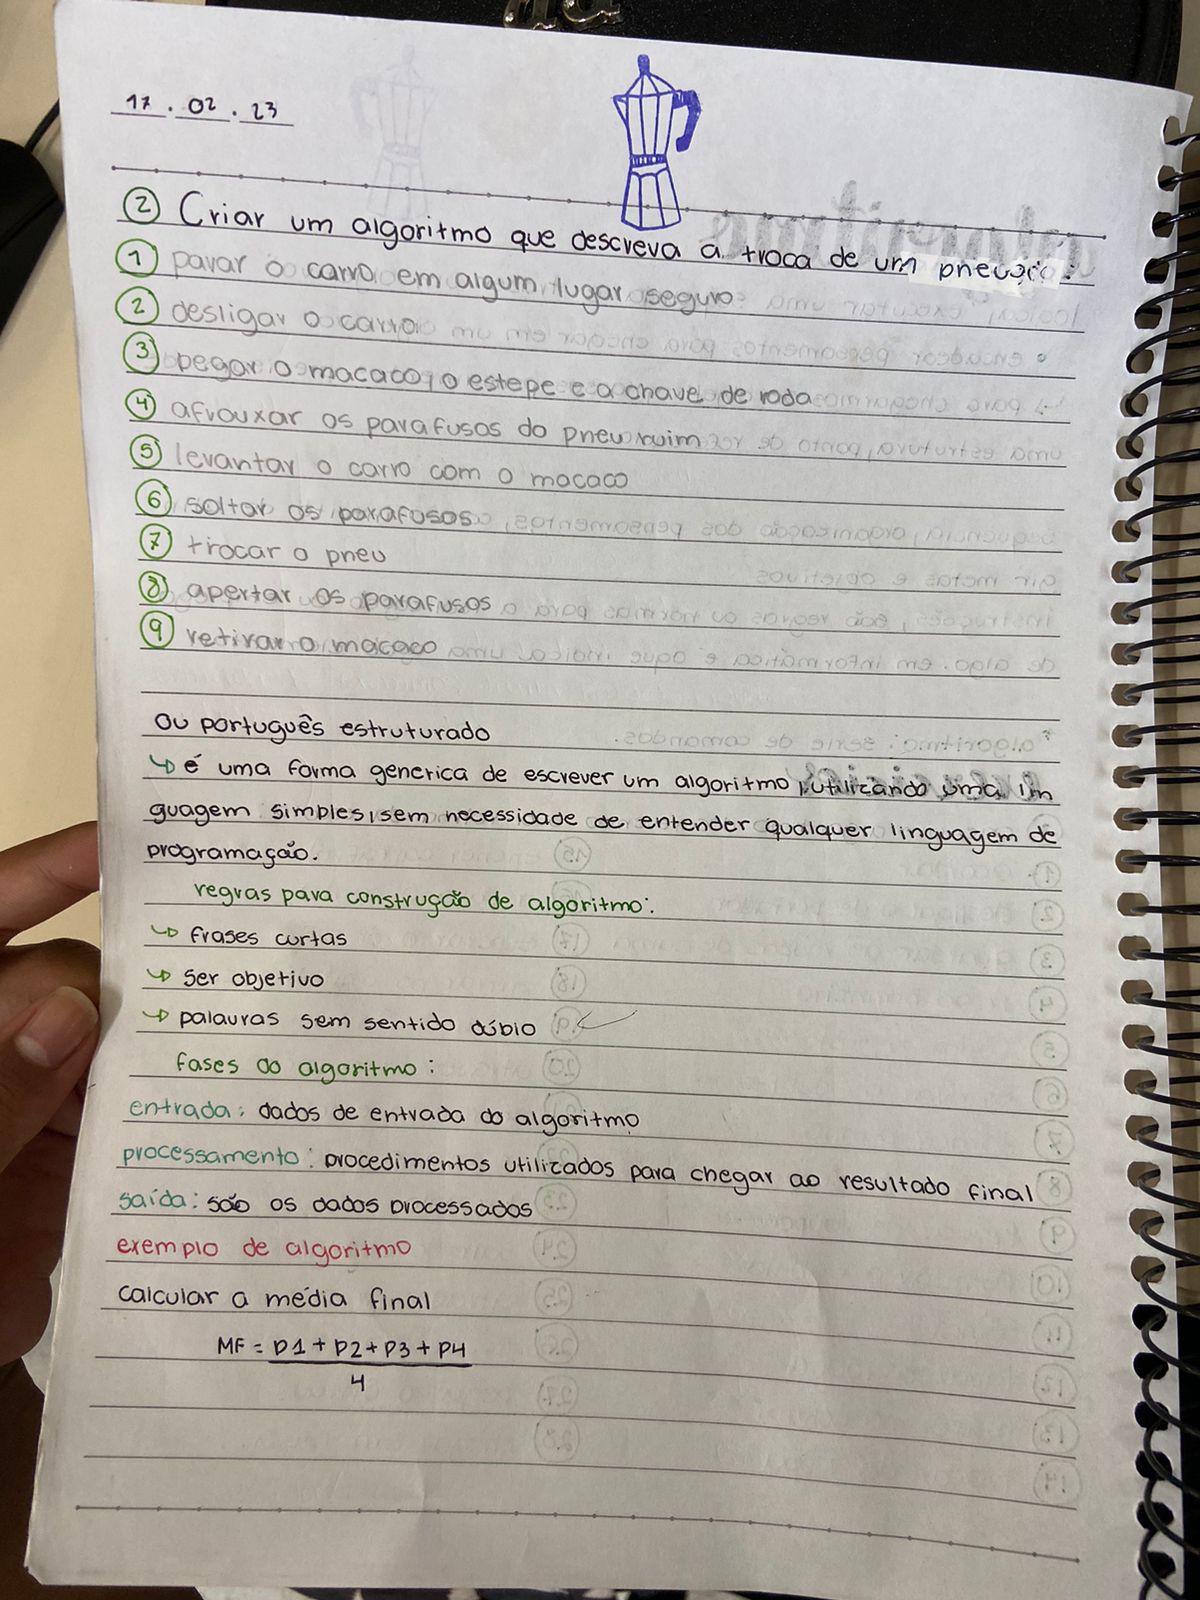 17.02.23
② Criar um algoritmo que descreva a troca de um pneu:
① parar o carro em algum lugar seguro
② desligar o carro
③ pegar o macaco, o estepe e a chave de roda
④ afrouxar os parafusos do pneu ruim
⑤ levantar o carro com o macaco
⑥ soltar os parafusos
⑦ trocar o pneu
⑧ apertar os parafusos
⑨ retirar o macaco
Ou português estruturado
↳ é uma forma generica de escrever um algoritmo, utilizando uma lin
guagem simples, sem necessidade de entender qualquer linguagem de
programação.
regras para construção de algoritmo:
↳ frases curtas
↳ ser objetivo
↳ palavras sem sentido dúbio
fases do algoritmo:
entrada: dados de entrada do algoritmo
processamento: procedimentos utilizados para chegar ao resultado final
saída: são os dados processados
exemplo de algoritmo
calcular a média final
MF = P1 + P2 + P3 + P4
4